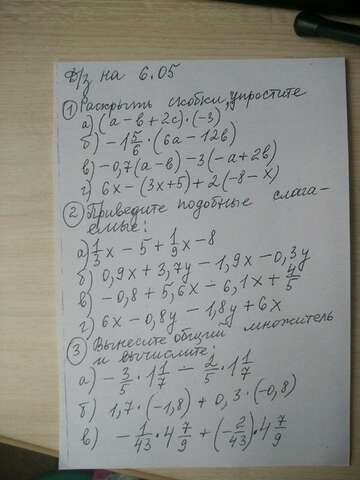 Д/з на 6.05
① Раскрыть скобки, упростите
а) (a - b + 2c) · (-3)
б) -1 5/6 · (6a - 12b)
в) -0,7(a - b) - 3(-a + 2b)
г) 6x - (3x + 5) + 2(-8 - x)
② Приведите подобные слага-
емые:
а) 1/3 x - 5 + 1/9 x - 8
б) 0,9x + 3,7y - 1,9x - 0,3y
в) -0,8 + 5,6x - 6,1x + 4/5
г) 6x - 0,8y - 1,8y + 6x
③ Вынесите общий множитель
и вычислите:
а) - 3/5 · 1 1/7 - 2/5 · 1 1/7
б) 1,7 · (-1,8) + 0,3 · (-0,8)
в) - 1/43 · 4 7/9 + (- 2/43) · 4 7/9